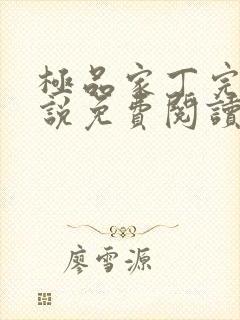 極品家丁完
說免費閱讀
廖雪源